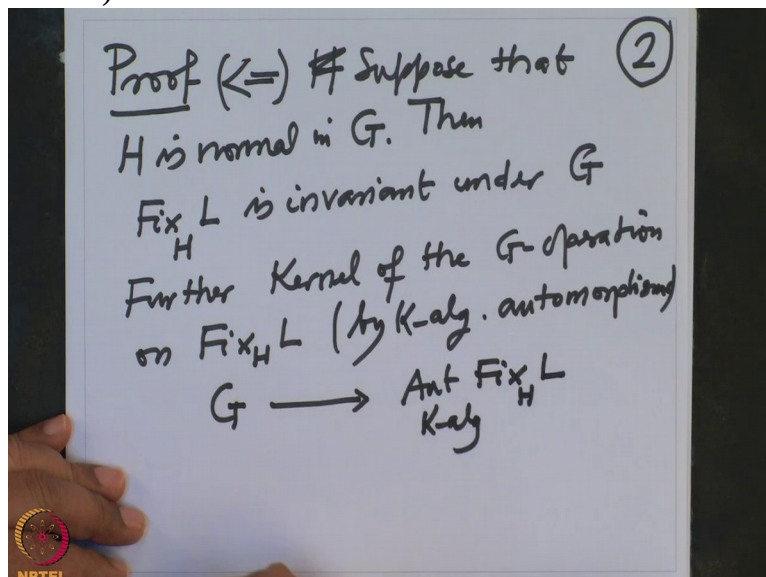 Proof (<=) Suppose that ②
H is normal in G. Then
Fix_H L is invariant under G
Further Kernel of the G-operation
on Fix_H L (by K-alg. automorphisms)
G ⟶ Aut_{K-alg} Fix_H L
NPTEL